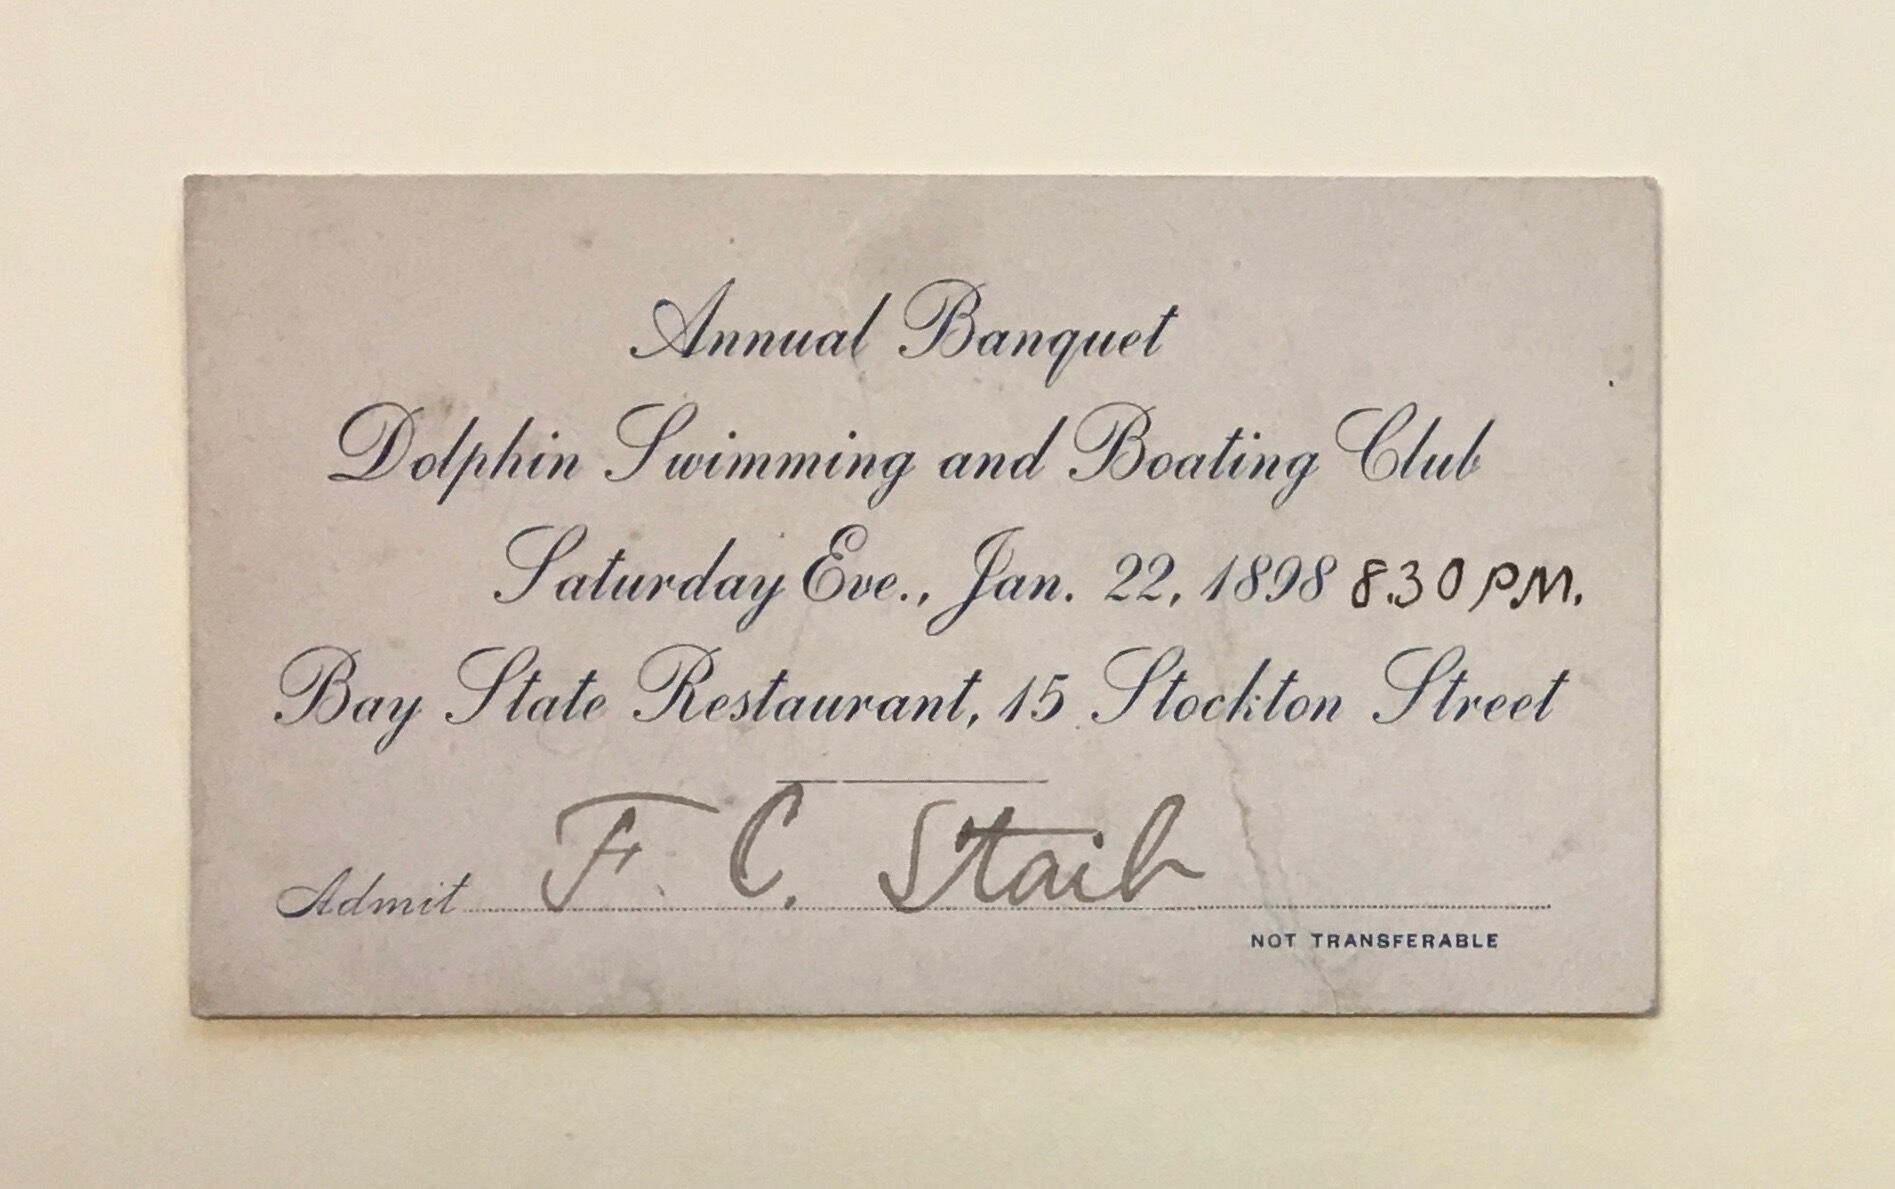 Annual Banquet
Dolphin Swimming and Boating Club
Saturday Eve., Jan. 22, 1898 8.30 P.M.
Bay State Restaurant, 15 Stockton Street
Admit F. C. Staib
NOT TRANSFERABLE